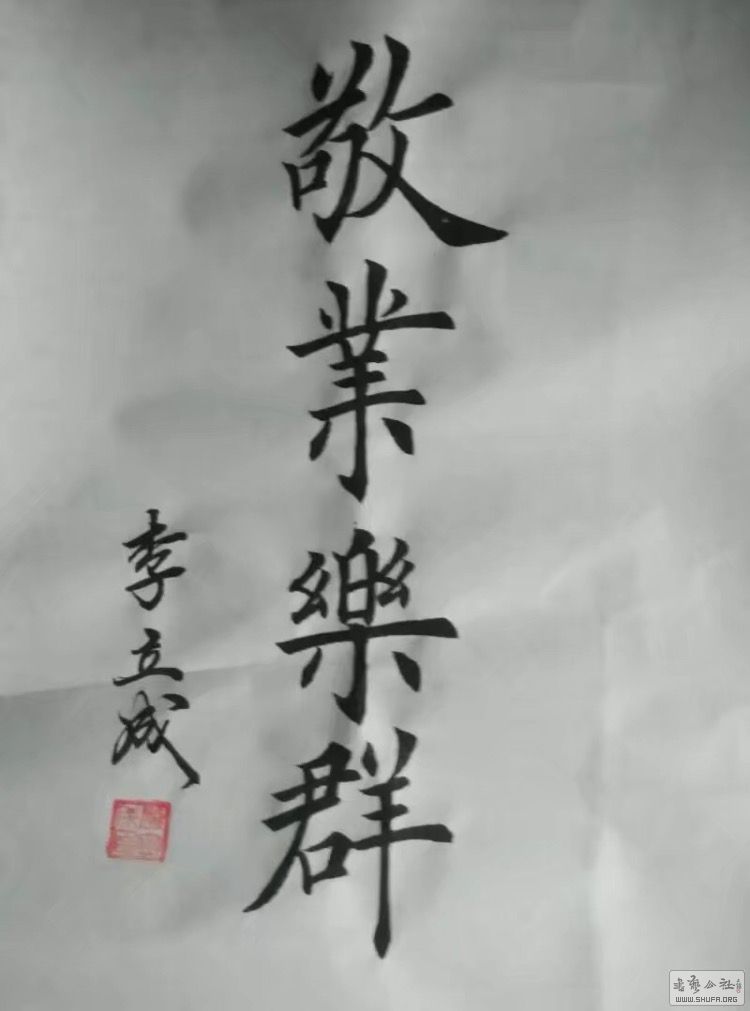 敬業樂群
李立成
书艺公社
WWW.SHUFA.ORG